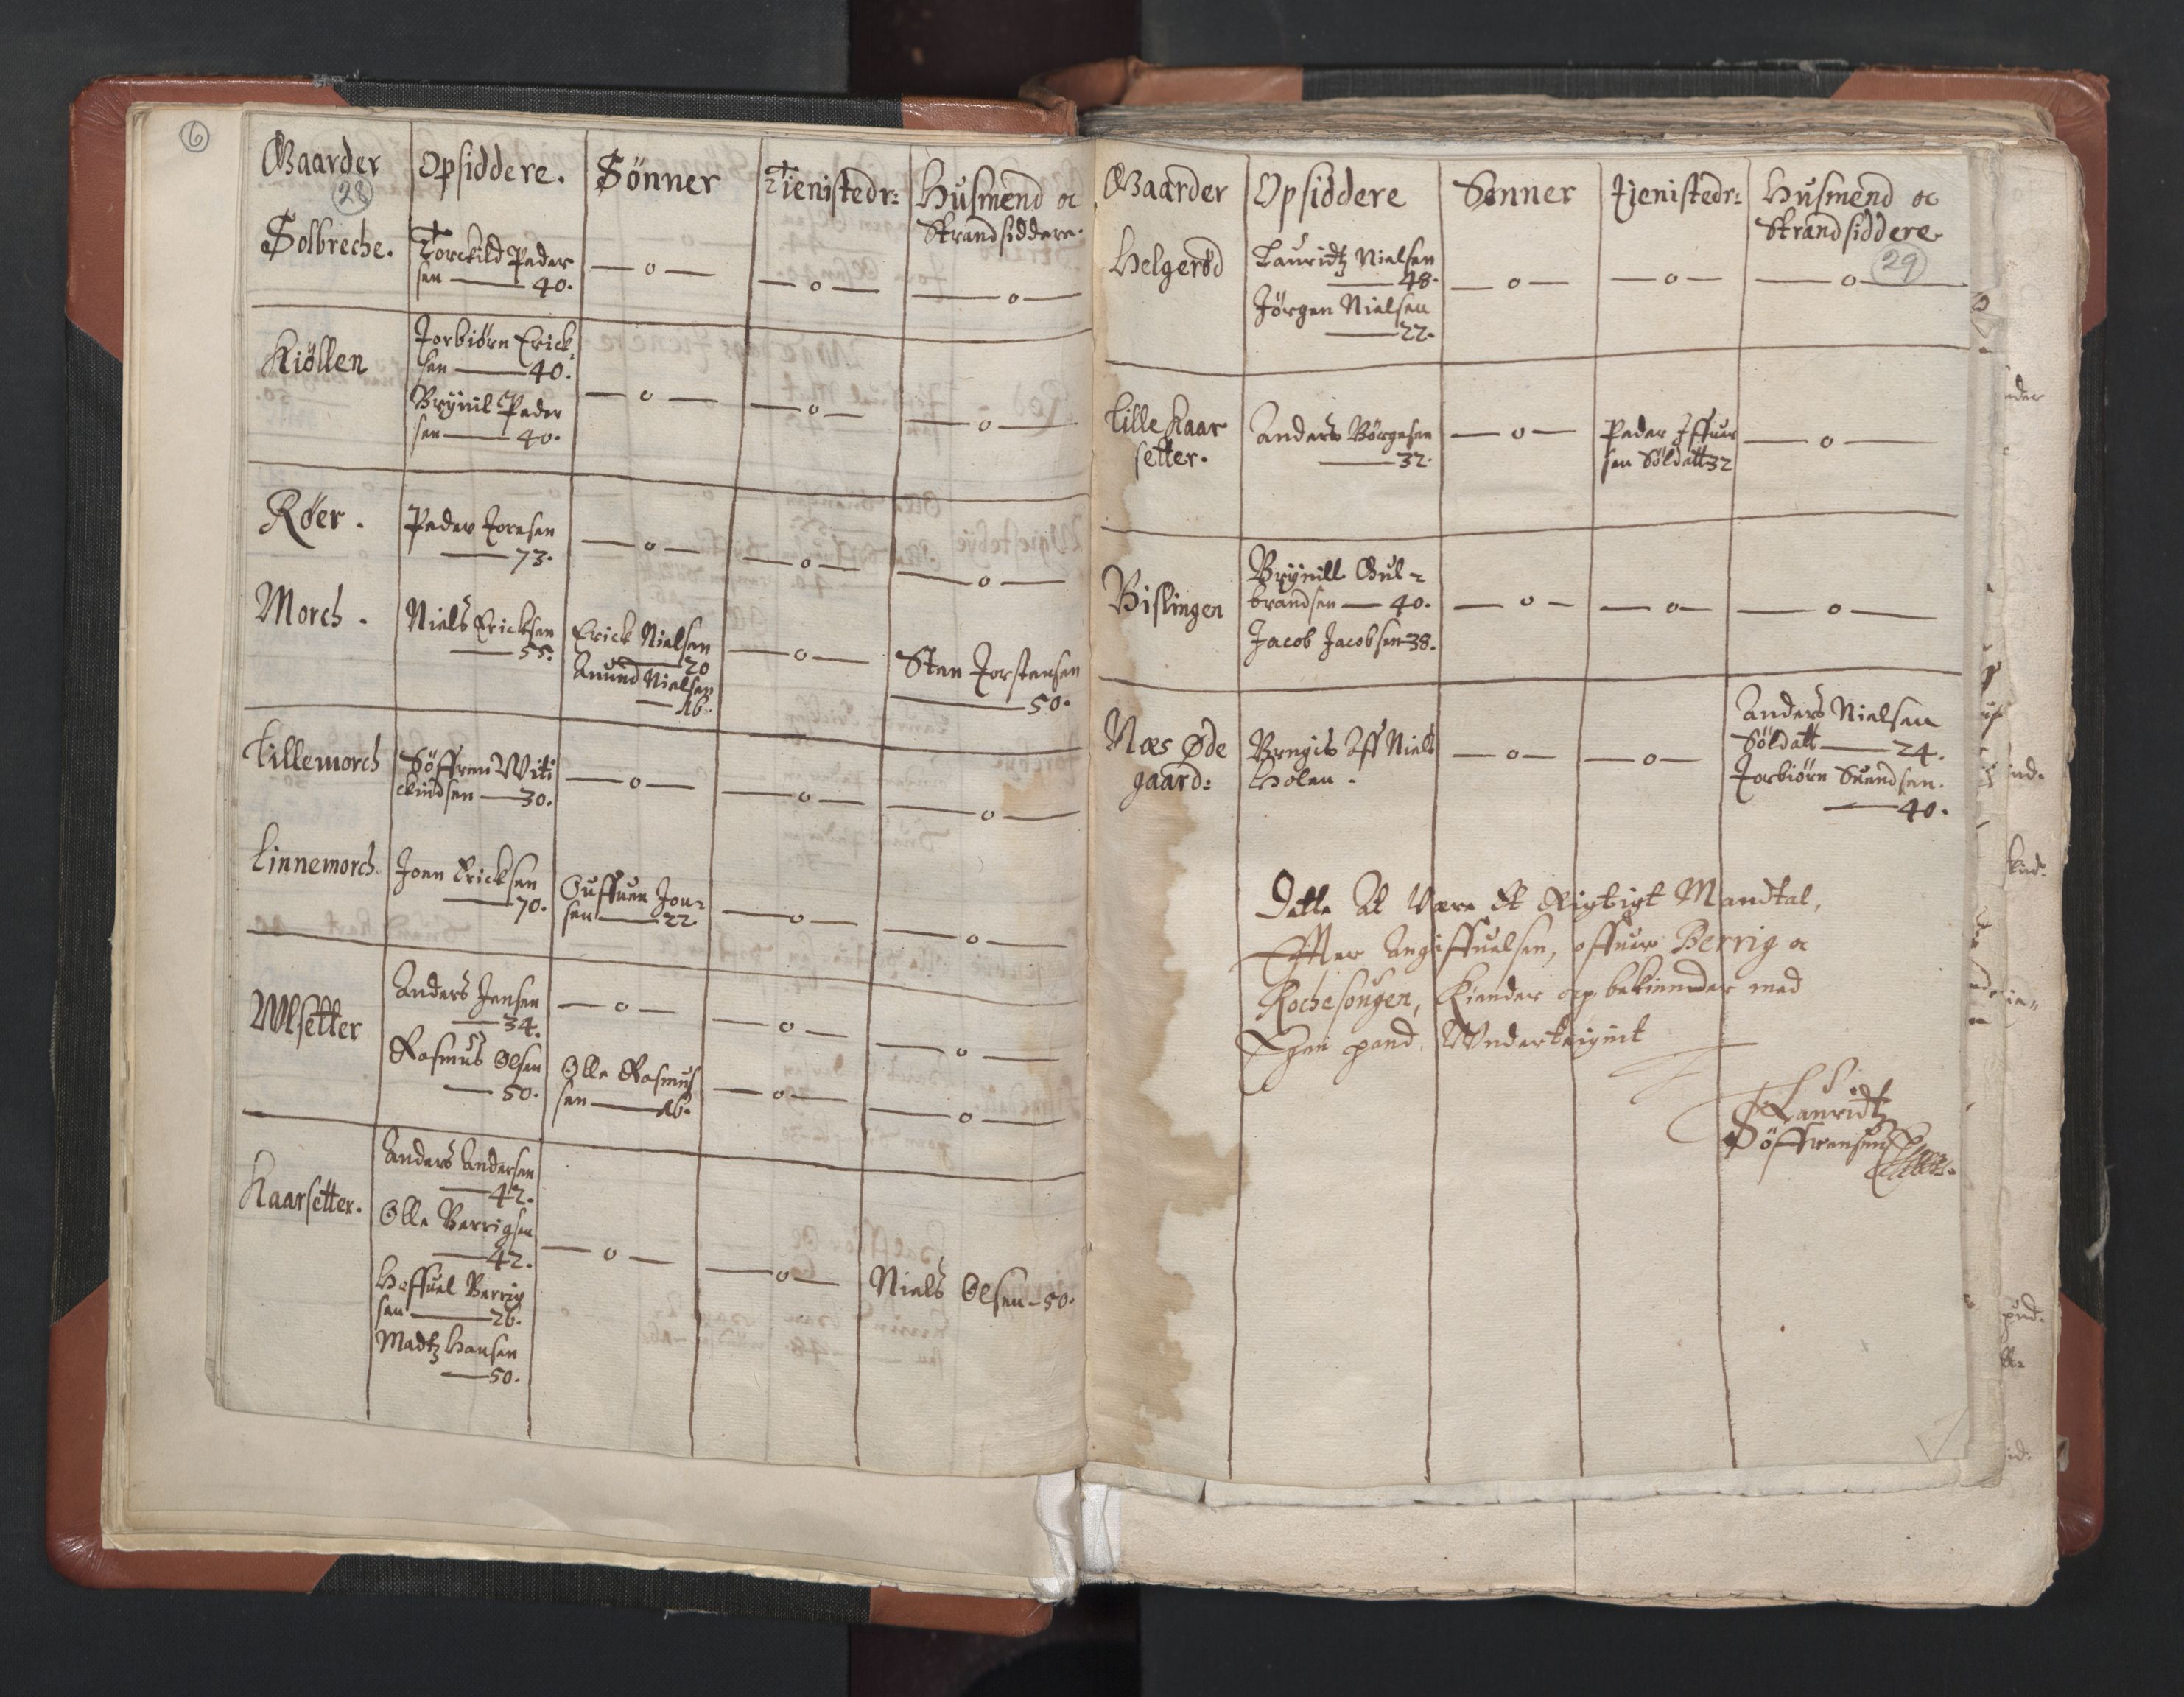 6
Gaarder
Opsiddere.
Sönner
Tienistedr:
Husmend oc
Strandsiddere.
28
Solbreche.
Torckild Peder
sen — 40.
— o —
— o —
— o —
Kiöllen
Torbiörn Erick-
sen — 40.
Brÿnil Peder
sen — 40.
— o —
— o —
— o —
Röer.
Peder Joresen
— 73.
— o —
— o —
— o —
Morch.
Niels Ericksen
— 55.
Erick Nielsen
— 20
Anund Nielsen
— 16.
— o —
Sten Torstensen
— 50.
Lillemorch
Söffren Witi
ckindsen — 30.
— o —
— o —
— o —
Linnemorch.
Joen Ericksen
— 70.
Guffuen Jon-
sen — 22
— o —
— o —
Wlsetter
Anders Jensen
— 34.
— o —
— o —
— o —
Rasmus Olsen
— 50.
Olle Rasmus
sen — 16.
— o —
— o —
Kaarsetter.
Anders Andersen
— 42.
Olle Berrigsen
— 42.
Heffuel Berrig
sen — 26.
Madtz Hansen
— 50.
— o —
— o —
Niels Olsen — 50.
Gaarder
Opsiddere
Sønner
Tjenistedr:
Husmend oc
Strandsiddere.
29
Helgerød
Lauridtz Nielsen
— 48.
Jörgen Nielsen
— 22.
— o —
— o —
— o —
Lille Kaar
setter.
Anders Börgesen
— 32.
— o —
Peder Iffuer
sen Söldatt 32
— o —
Bislingen
Brÿnill Gul-
brandsen — 40.
Jacob Jacobsen 38.
— o —
— o —
— o —
Næs Øde
gaard:
Brugis Aff Niels
Holen.
— o —
— o —
Anders Nielsen
Söldatt — 24.
Torbiörn Suendsen.
— 40.
Dette At Være Et Rigtigt Mandtal,
Effter Angiffuelsen, offuer Berrig oc
Rochesougen, Kiender oc bekiender med
Egen Hand Underteignit
Lauridtz
Söffrensen